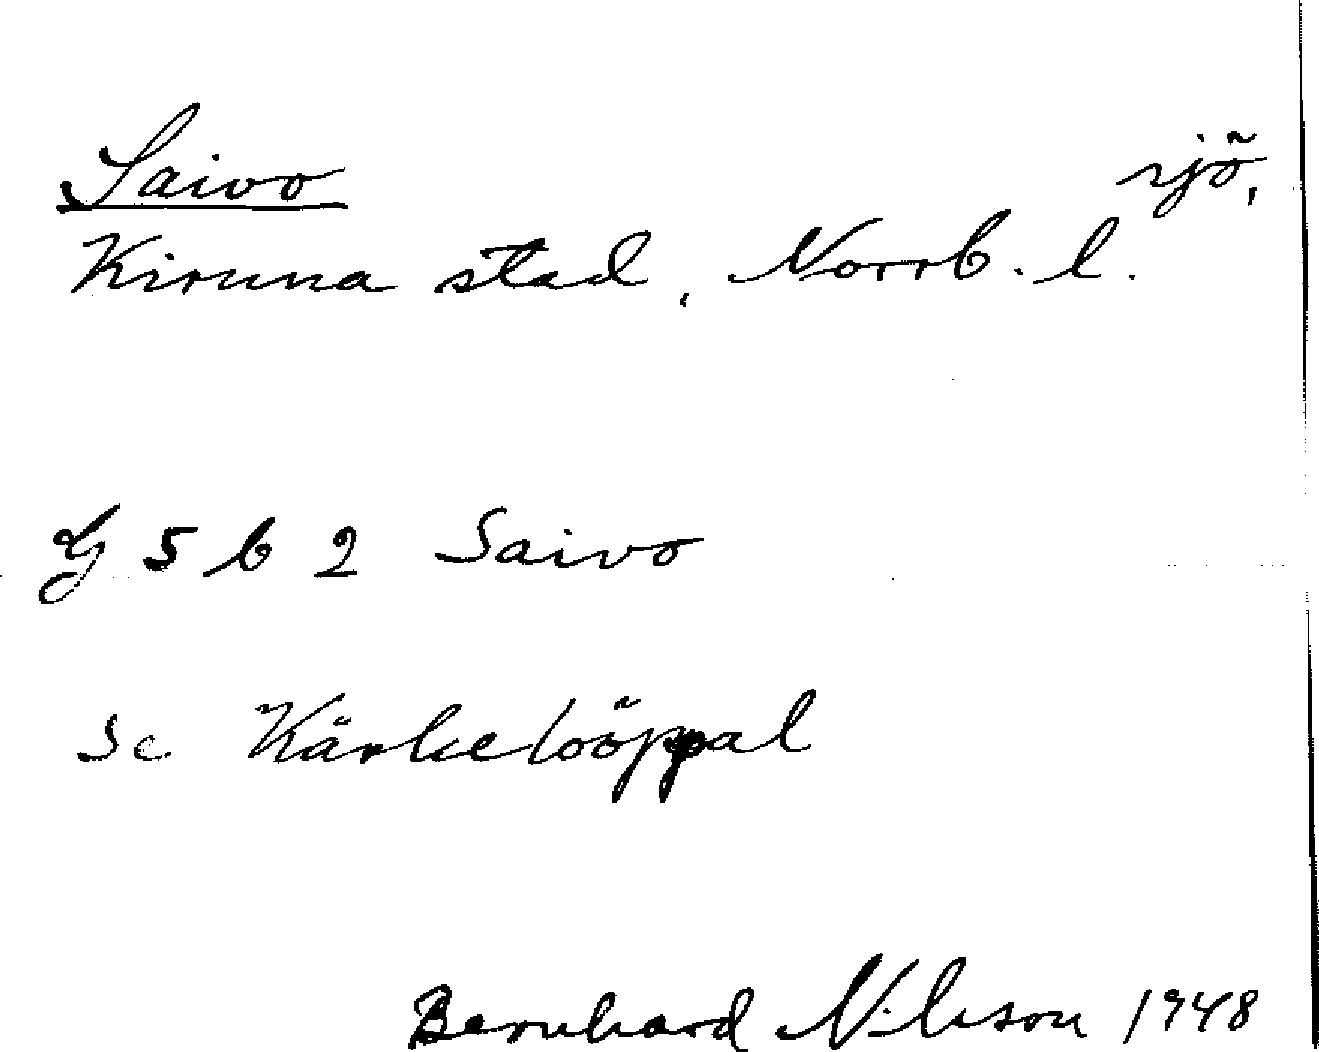 Saivo sjö,
Kiruna stad, Norrb. l.
G 5 b 2 Saivo
Se Kärkelööppal
Bernhard Nilsson 1948